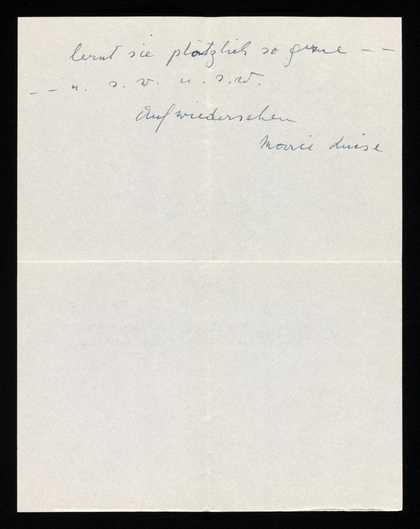 lernt sie plötzlich so gerne – –
– – u. s. w. u. s. w.
Auf wiedersehen
Marie Luise